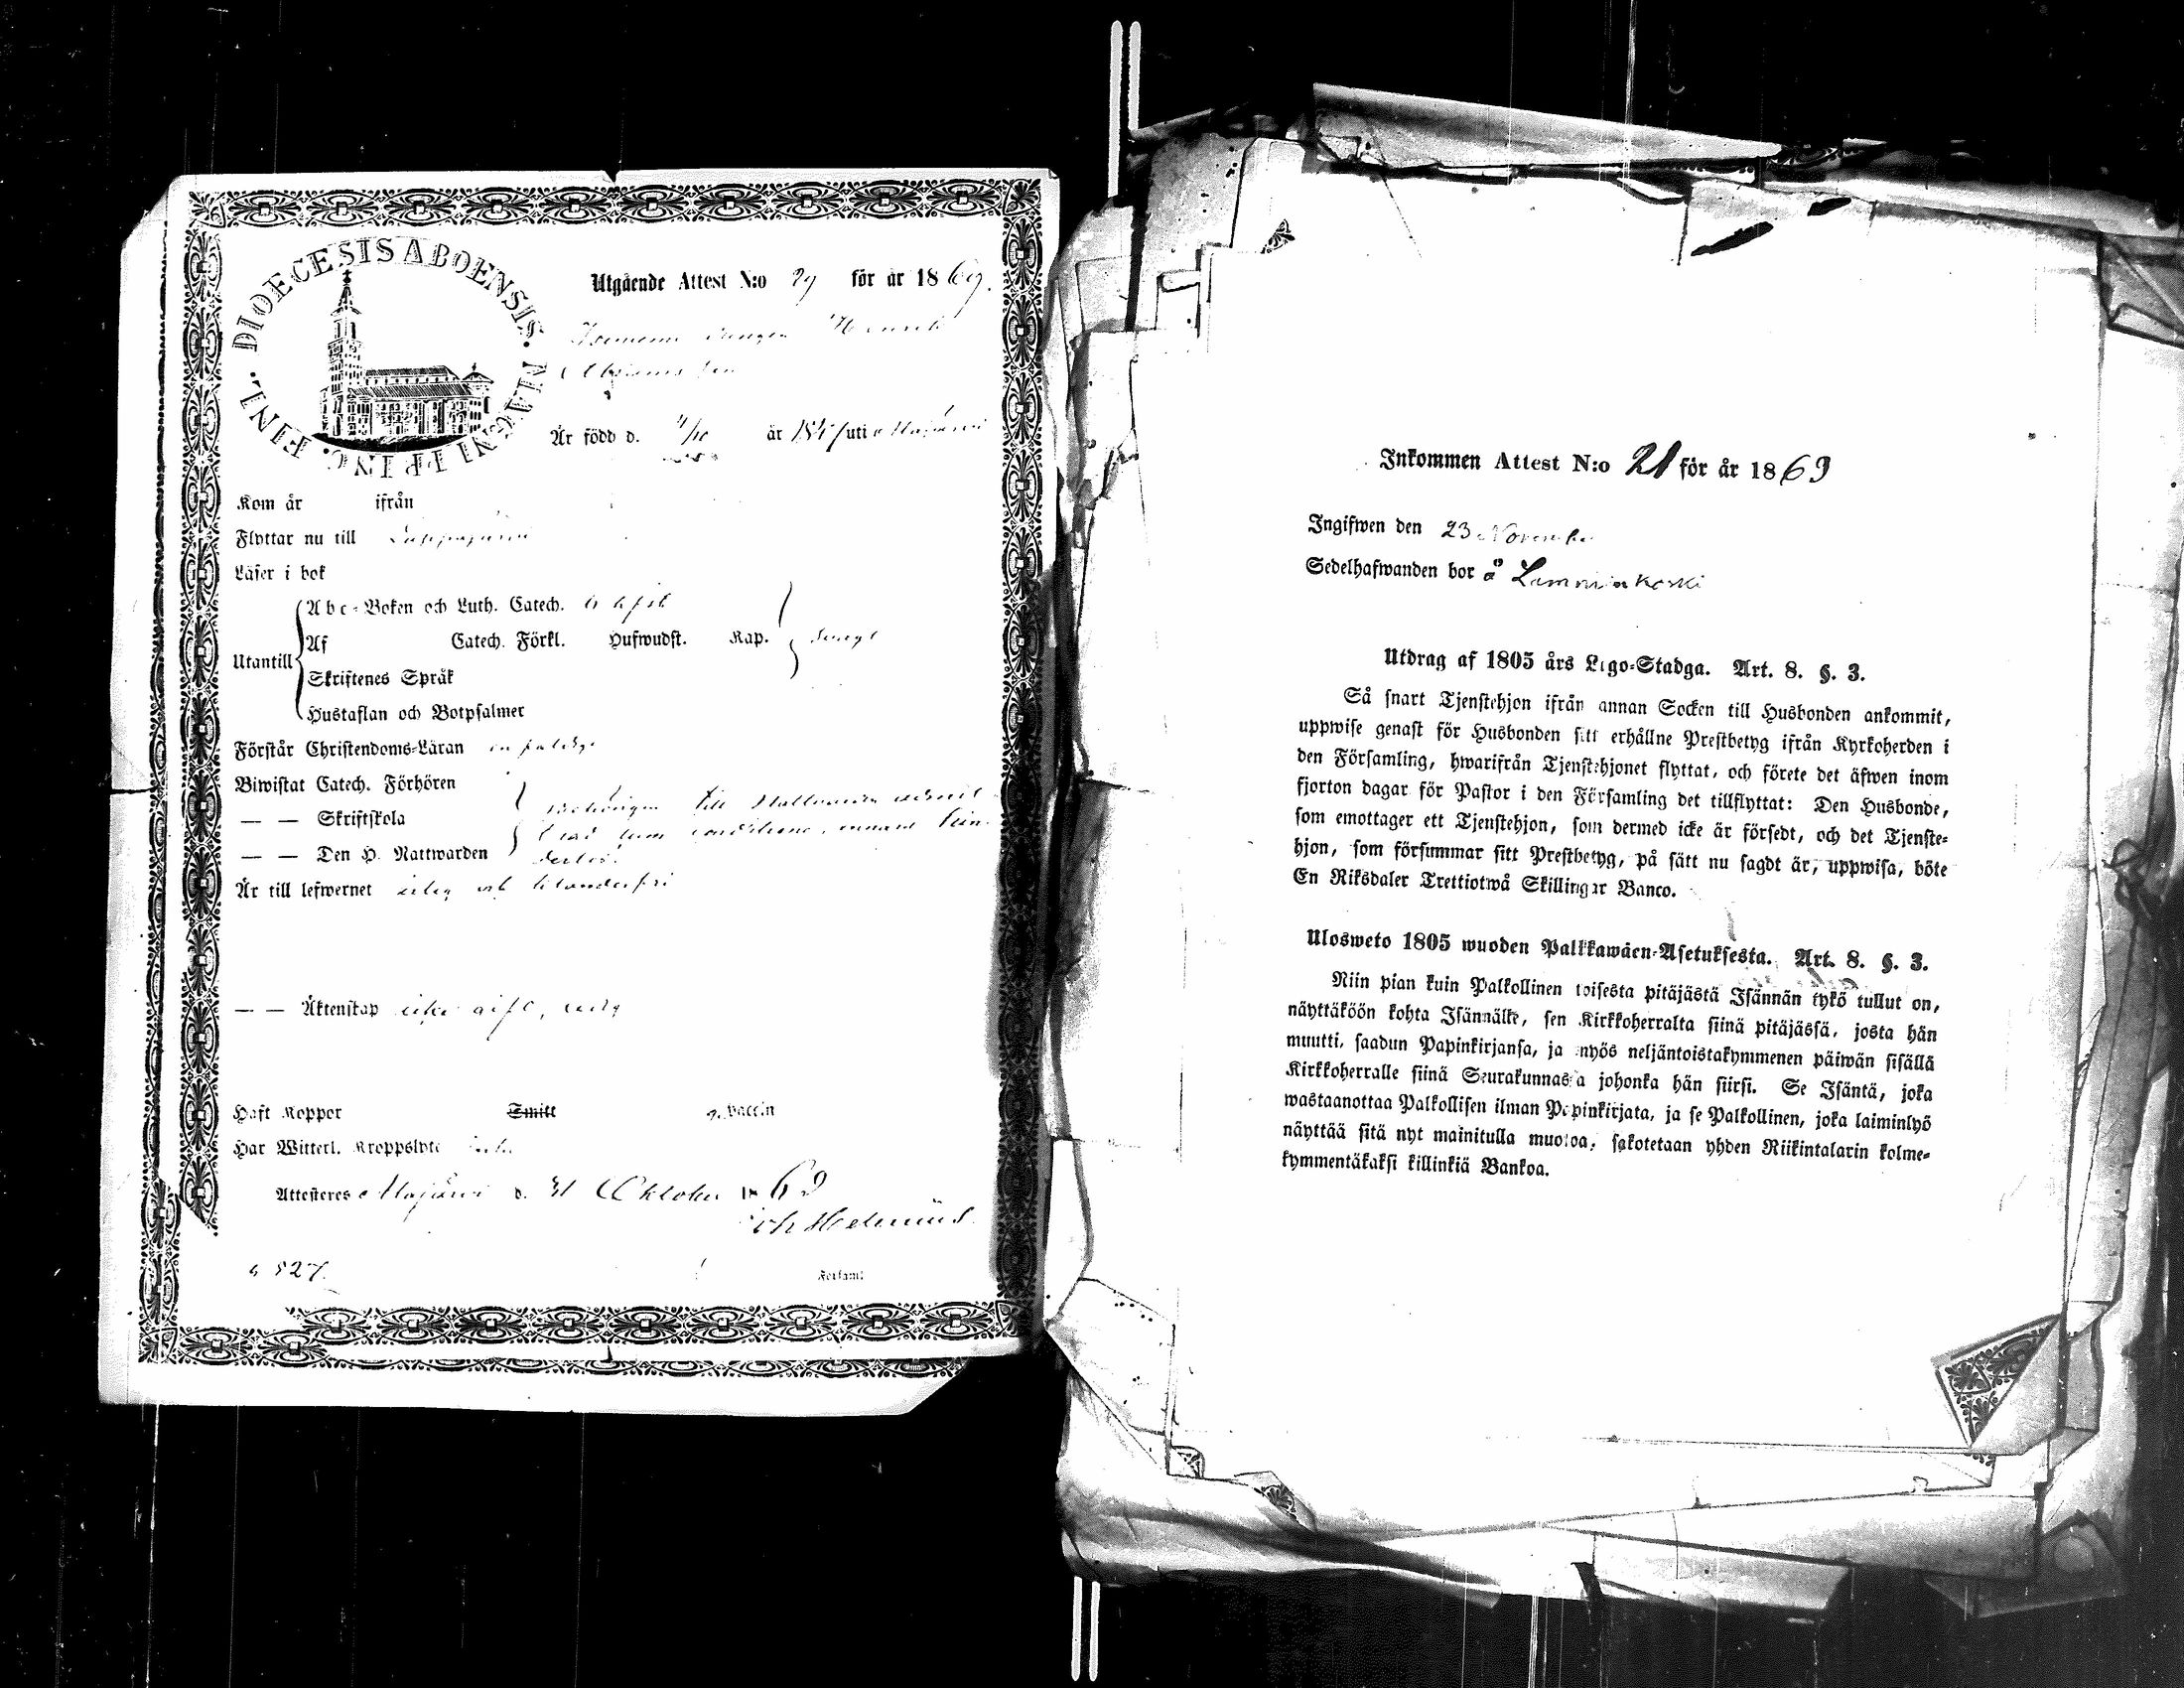 DIOECESIS ABOENSIS. MAGNI PRINC. FINL.
Utgående Attest N:o 29 för år 1869.
Henrik
Är född d. 4/10 år 1847 uti Alajärvi
Kom år ifrån
Flyttar nu till Lappajärvi
Läser i bok
Abc-Boken och Luth. Catech.
Utantill Af Catech. Förkl. Hufwudst. Kap. svagt
Skriftenes Språk
Hustaflan och Botpsalmer
Förstår Christendoms-Läran
Biwistat Catech. Förhören
— — Skriftskola till
— — Den H. Nattwarden
Är till lefwernet ärlig och klanderfri
— — Äktenskap icke gift, ledig
Haft Koppor Smitt Vaccin
Har Witterl. Kroppslyte
Attesteres Alajärvi d. 31 Oktober 1869
Helenius
527.
Forsaml
Inkommen Attest N:o 21 för år 1869
Ingifwen den 23 November
Sedelhafwanden bor å Lamminkoski
Utdrag af 1805 års Lego-Stadga. Art. 8. §. 3.
Så snart Tjenstehjon ifrån annan Socken till Husbonden ankommit,
uppwise genast för Husbonden sitt erhållne Prestbetyg ifrån Kyrkoherden i
den Församling, hwarifrån Tjenstehjonet flyttat, och förete det äfwen inom
fjorton dagar för Pastor i den Församling det tillflyttat: Den Husbonde,
som emottager ett Tjenstehjon, som dermed icke är försedt, och det Tjenste-
hjon, som försummar sitt Prestbetyg, på sätt nu sagdt är, uppwisa, böte
En Riksdaler Trettiotwå Skillingar Banco.
Ulosweto 1805 wuoden Palkkawäen-Asetuksesta. Art. 8. §. 3.
Niin pian kuin Palkollinen toisesta pitäjästä Isännän tykö tullut on,
näyttäköön kohta Isännälle, sen Kirkkoherralta siinä pitäjässä, josta hän
muutti, saadun Papinkirjansa, ja myös neljäntoistakymmenen päiwän sisällä
Kirkkoherralle siinä Seurakunnassa johonka hän siirsi. Se Isäntä, joka
wastaanottaa Palkollisen ilman Papinkirjata, ja se Palkollinen, joka laiminlyö
näyttää sitä nyt mainitulla muotoa, sakotetaan yhden Riikintalarin kolme-
kymmentäkaksi killinkiä Bankoa.